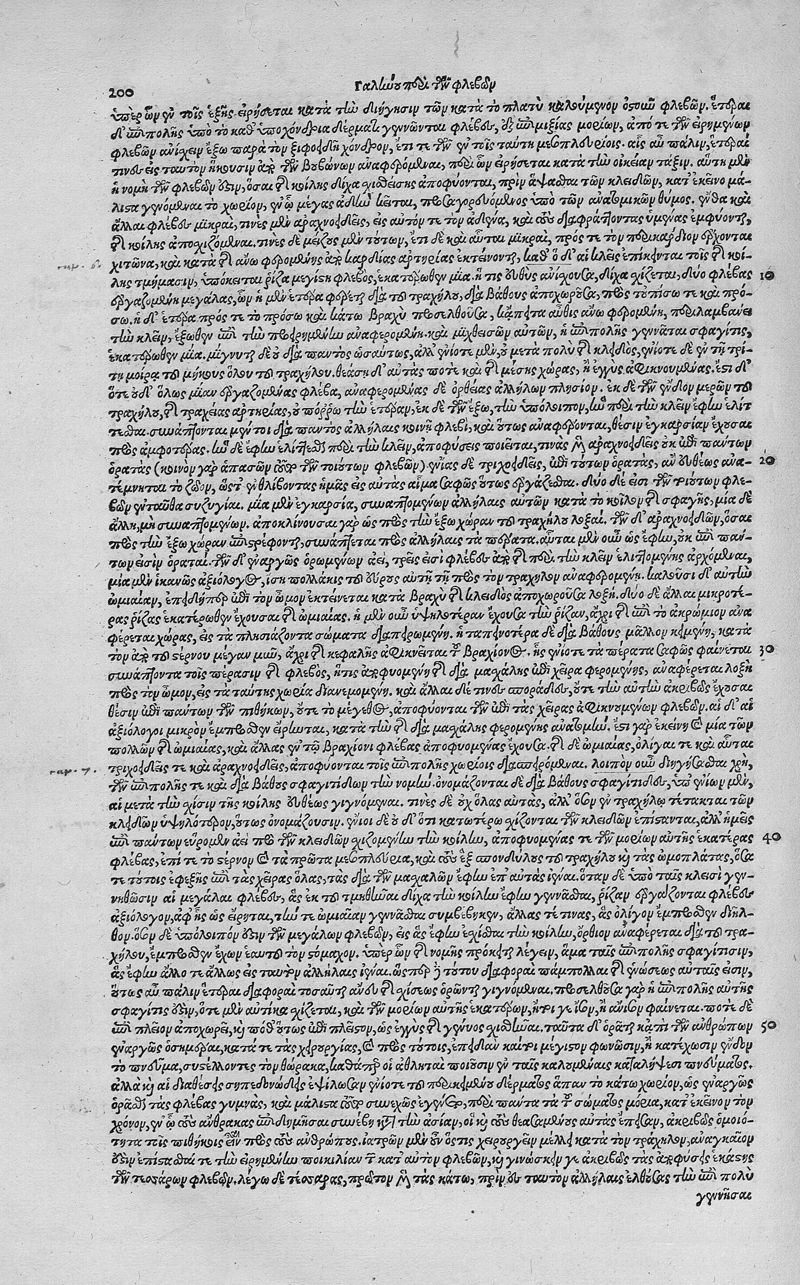 200
Γαληνοῦ περὶ τῶν φλεβῶν
ὑπὲρ ὧν ἐν τοῖς ἑξῆς εἰρήσεται κατὰ τὴν διήγησιν τῶν κατὰ τὸ πλατὺ καλούμενον ὀστοῦν φλεβῶν. ἕτεραι
δ' ἐπιπολῆς ὑπὸ τὸ καθ' ὑποχόνδρια δέρμα γίγνονται φλέβες, ἐξ ἐπιμιξίας μορίων, ἀπό τε τῶν εἰρημένων
φλεβῶν ἀνίσχειν ἔξω παρὰ τὸν ξιφοειδῆ χόνδρον, ἔτι τε τῶν ἐν τοῖς ταύτῃ μεσοπλευρίοις. αἷς αὖ πάλιν, ἕτεραί
τινες εἰς ταυτὸν ἥκουσιν ἀπὸ τῶν βουβώνων ἀναφερόμεναι, περὶ ὧν εἰρήσεται κατὰ τὴν οἰκείαν τάξιν. αὕτη μὲν
ἡ νομὴ τῶν φλεβῶν ἐστιν, ὅσαι τῆς κοίλης δίχα σχισθείσης ἀποφύονται, πρὶν ἅψασθαι τῶν κλειδῶν, κατ' ἐκεῖνο μά-
λιστα γενόμεναι τὸ χωρίον, ἐν ᾧ μέγας ἀδὴν κεῖται, προσαγορευόμενος ὑπὸ τῶν ἀνατομικῶν θύμος. ἔνθα καὶ
ἄλλαι φλέβες μικραί, τινὲς μὲν ἀραχνοειδεῖς, εἰς αὐτόν τε τὸν ἀδένα, καὶ τοὺς διαφράττοντας ὑμένας ἐμφύονται,
τῆς κοίλης ἀποσχιζόμεναι. τινὲς δὲ μείζους μὲν τούτων, ἔτι δὲ καὶ αὗται μικραί, πρός τε τὸν περικάρδιον ἔρχονται
χιτῶνα, καὶ κατὰ τῆς ἄνω φερομένης ἀπὸ καρδίας ἀρτηρίας ἐκτείνονται, καθ' ὃ δ' αἱ κλεῖς ἐπίκεινται τοῖς τῆς κοί-
λης τμήμασιν, ὑπόκειται ῥίζα μεγίστη φλεβός, ἑκατέρωθεν μία. ἥ τις εὐθὺς ἀνίσχουσα, δίχα σχίζεται, δύο φλέβας 10
ἐργαζομένη μεγάλας, ὧν ἡ μὲν ἑτέρα φέρεται διὰ τοῦ τραχήλου, διὰ βάθους ἀποχωροῦσα, πρὸς τὸ πίσω τε καὶ πρό-
σω. ἡ δ' ἑτέρα πρός τε τὸ πρόσω καὶ κάτω βραχὺ προσελθοῦσα, κἄπειτα αὖθις ἄνω φερομένη, περιλαμβάνει
τὴν κλεῖν, ἔξωθεν ἐπὶ τὴν προειρημένην ἀναφερομένη. καὶ μιχθεισῶν αὐτῶν, ἡ ἐπιπολῆς γίγνεται σφαγῖτις,
ἑκατέρωθεν μία. μίγνυνται δὲ οὐ διὰ παντὸς ὡσαύτως, ἀλλ' ἐνίοτε μὲν, οὐ μετὰ πολὺ τῆς κλειδὸς, ἐνίοτε δὲ ἐν τῇ τρί-
τῃ μοίρᾳ τοῦ μήκους ὅλου τοῦ τραχήλου. θεάσῃ δ' αὐτάς ποτε καὶ τῆς μέσης χώρας, ἢ ἐγγὺς ἀφικνουμένας. ἔστι δ'
ὅτε οὐδ' ὅλως μίαν ἐργαζομένας φλέβα, ἀναφερομένας δὲ ὀρθείας ἀλλήλων πλησίον. ἐκ δὲ τῶν ἔνδον μερῶν τοῦ
τραχήλου, τῆς τραχείας ἀρτηρίας, οὐ πόρρω τὴν ἑτέραν, ἐκ δὲ τῶν ἔξω, τὴν ὑπόλοιπον, ἣν περὶ τὴν κλεῖν ἔφην ἑλίτ-
τεσθαι. συνάπτονται μέντοι διὰ παντὸς ἀλλήλαις κοινῇ φλεβί, καὶ οὕτως ἀναφέρονται, θέσιν ἐγκαρσίαν ἐχούσῃ
πρὸς ἀμφοτέρας. ἣν δὲ ἔφην ἑλίττεσθαι περὶ τὴν κλεῖν, ἀποφύσεις ποιεῖται, τινὰς μὲν ἀραχνοειδεῖς οὐκ ἐπὶ πάντων
ὁρατὰς (κοινὸν γὰρ ἁπασῶν ἐστι τῶν τοιούτων φλεβῶν) ἐνίας δὲ τριχοειδεῖς, ἐπὶ τούτων ὁρατὰς, ἂν εὐθέως ἀνα- 20
τέμνηται τὸ ζῷον, ὥστ' ἐνθλίβοντας ἡμᾶς εἰς αὐτὰς αἷμα σαφῶς οὕτως ἐργάζεσθαι. δύο δέ εἰσι τῶν τοιούτων φλε-
βῶν ἐνταῦθα συζυγίαι. μία μὲν ἐγκαρσία, συναπτομένων ἀλλήλαις αὐτῶν κατὰ τὸ κοῖλον τῆς σφαγῆς, μία δὲ
ἄλλη, μὴ συναπτομένων. ἀποκλίνουσαι γὰρ ὡς πρὸς τὴν ἔξω χώραν τοῦ τραχήλου λοξαί. τῶν δ' ἀραχνοειδῶν, ὅσαι
πρὸς τὴν ἔξω χώραν ἐπιστρέφονται, συνάπτεται πρὸς ἀλλήλαις τὰ πέρατα. αὗται μὲν οὖν ὡς ἔφην, οὐκ ἐπὶ πάν-
των εἰσὶν ὁραταί. τῶν δ' ἐναργῶς ὁρωμένων ἀεί, τρεῖς εἰσι φλέβες ἀπὸ τῆς περὶ τὴν κλεῖν ἑλιττομένης ἀρχόμεναι,
μία μὲν ἱκανῶς ἀξιόλογος, ἴση πολλάκις τὸ εὖρος αὐτῇ τῇ πρὸς τὸν τράχηλον ἀναφερομένῃ. καλοῦσι δ' αὐτὴν
ὠμιαίαν, ἐπειδήπερ ἐπὶ τὸν ὦμον ἐκτείνεται κατὰ βραχὺ τῆς κλειδὸς ἀποχωροῦσα λοξή. δύο δὲ ἄλλαι μικροτέ-
ρας ῥίζας ἑκατέρωθεν ἔχουσαι τῆς ὠμιαίας. ἡ μὲν οὖν ὑψηλοτέραν ἔχουσα τὴν ῥίζαν, ἄχρι τῆς ἐπὶ τὸ ἀκρώμιον ἀνα
φέρεται χώρας, εἰς τὰ πλησιάζοντα σώματα διασπειρομένη. ἡ ταπεινοτέρα δὲ διὰ βάθους μᾶλλον κειμένη, κατὰ
τὸν ἀπὸ τοῦ στέρνου μέγαν μῦν, ἄχρι τῆς κεφαλῆς ἀφικνεῖται τοῦ βραχίονος. ἧς ἐνίοτε τὰ πέρατα σαφῶς φαίνεται 30
συνάπτοντα τοῖς πέρασιν τῆς φλεβὸς, ἥτις ἀποφυομένη τῆς διὰ μασχάλης ἐπὶ χεῖρα φερομένης, ἀναφέρεται λοξὴ
πρὸς τὸν ὦμον, εἰς τὰ ταύτης χωρία διανεμομένη. καὶ ἄλλαι δέ τινες σποράδες, οὔτε τὴν αὐτὴν ἀκριβῶς ἔχουσαι
θέσιν ἐπὶ πάντων τῶν πιθήκων, οὔτε τὸ μέγεθος, ἀποφύονται τῶν ἐπὶ τὰς χεῖρας ἀφικνουμένων φλεβῶν. αἱ δ' αἱ
ἀξιόλογοι μικρὸν ἔμπροσθεν εἴρηνται, κατὰ τὴν τῆς διὰ μασχάλης φερομένης ἀνατομήν. ἔστι γὰρ ἐκείνη καὶ μία τῶν
πολλῶν τῆς ὠμιαίας, καὶ ἄλλας ἐν τῷ βραχίονι φλέβας ἀποφυομένας ἔχουσα. τῆς δὲ ὠμιαίας, ὀλίγαι τε καὶ αὗται
τριχοειδεῖς τε καὶ ἀραχνοειδεῖς, ἀποφύονται τοῖς ἐπιπολῆς χωρίοις διασπειρόμεναι. λοιπὸν οὖν διηγεῖσθαι χρὴ,
τῶν ἐπιπολῆς τε καὶ διὰ βάθους σφαγιτίδων τὴν νομήν. ὀνομάζονται δὲ διὰ βάθους σφαγίτιδες, ὑπ' ἐνίων μὲν,
αἱ μετὰ τὴν σχίσιν τῆς κοίλης εὐθέως γιγνόμεναι. τινὲς δὲ οὐχ ὅλας αὐτὰς, ἀλλ' ὅσον ἐν τραχήλῳ τέτακται τῶν
κλειδῶν ὑψηλότερον, οὕτως ὀνομάζουσιν. ἔνιοι δὲ οὐδ' ὅτι κατωτέρω σχίζονται τῶν κλειδῶν ἐπίστανται, ἀλλ' ἡμεῖς
ἐπὶ πάντων εὕρομεν ἀεὶ πρὸ τῶν κλειδῶν σχιζομένην τὴν κοίλην, ἀποφυομένας τε τῶν μορίων αὐτῆς ἑκατέρας 40
φλέβας, ἐπί τε τὸ στέρνον καὶ τὰ πρῶτα μεσοπλεύρια, καὶ τοὺς ἓξ σπονδύλους τοῦ τραχήλου καὶ τὰς ὠμοπλάτας, ὅσα
τε τούτοις ἐφεξῆς ἐπὶ τὰς χεῖρας ὅλας, τὰς διὰ τῶν μασχαλῶν ἔφην ἐπ' αὐτὰς ἰέναι. ὅταν δὲ ὑπὸ ταῖς κλεισὶ γεν-
νηθῶσιν αἱ μεγάλαι φλέβες, ἃς ἐκ τοῦ τμηθῆναι δίχα τὴν κοίλην ἔφην γεννᾶσθαι, ῥίζαν ἐργάζονται φλεβὸς
ἀξιόλογον, ἀφ' ἧς ὡς εἴρηται, τήν τε ὠμιαίαν γεννᾶσθαι συμβέβηκεν, ἄλλας τέ τινας, ἃς ὀλίγον ἔμπροσθεν διῆλ-
θον. ὅσον δὲ ὑπόλοιπόν ἐστιν τῶν μεγάλων φλεβῶν, εἰς ἃς ἔφην σχίζεσθαι τὴν κοίλην, ὄρθιον ἀναφέρεται διὰ τοῦ τρα-
χήλου, ἔμπροσθεν ἔχων ἑαυτοῦ τὸν στόμαχον. ὑπὲρ ὧν τῆς νομῆς πρόκειται λέγειν, ἅμα ταῖς ἐπιπολῆς σφαγίτισιν,
ἃς ἔφην ἄλλοτε ἄλλως εἰς ταυτὸν ἀλλήλαις ἰέναι. ὥσπερ δὲ τούτου διαφοραὶ πάμπολλαι τῆς ἑνώσεως αὐταῖς εἰσιν,
οὕτως αὖ πάλιν ἕτεραι διαφοραὶ τοσαῦται τῆς σχίσεως ὁρῶνται γιγνόμεναι. προσελθοῦσα γὰρ ἡ ἐπιπολῆς αὐτῆς
σφαγῖτις ἐστιν, ὅτε μὲν αὐτίκα σχίζεται, καὶ τῶν μορίων αὐτῆς ἑκάτερον, ἤτοι γε ἴσον, ἢ ἄνισον φαίνεται. ποτὲ δὲ
ἐπὶ πλεῖον ἀποχωρεῖ, καί ποθ' οὕτως ἐπὶ πλεῖστον, ὡς ἐγγὺς τῆς γένυος σχισθῆναι. ταῦτα δ' ὁρᾶται κἀπὶ τῶν ἀνθρώπων 50
ἐναργῶς ὁσημέραι, κατά τε τὰς χειρουργίας, καὶ πρὸς τούτοις, ἐπειδὰν καίτοι μέγιστον φωνῶσιν, ἢ κατέχωσιν ἔνδον
τὸ πνεῦμα, συστέλλοντες τὸν θώρακα, καθάπερ οἱ ἀθληταὶ ποιοῦσιν ἐν ταῖς καλουμέναις καταλήψεσι πνεύματος.
ἀλλὰ καὶ αἱ διαθέσεις σηπεδονώδεις ἐψίλωσαν ἐνίοτε τοῦ περικειμένου δέρματος ἅπαν τὸ κάτω χωρίον, ὡς ἐναργῶς
ὁρᾶσθαι τὰς φλέβας γυμνὰς, καὶ μάλιστα ὅπερ συνεχῶς ἐγένετο, περὶ πάντα τὰ τοῦ σώματος μόρια, κατ' ἐκεῖνον τὸν
χρόνον, ἐν ᾧ τοὺς ἄνθρακας ἐπιδημῆσαι συνέβη κατὰ τὴν ἀσίαν, οἱ καὶ τοὺς θεασαμένους αὐτὰς ἔπεισαν, ἀκριβῶς ὁμοιό-
τητα τοῖς πιθήκοις εἶναι πρὸς τοὺς ἀνθρώπους. ἰατρῶν μὲν ἕν' ὅστις χειρουργεῖν μέλλει κατὰ τὸν τράχηλον, ἀναγκαῖον
ἐστιν ἐπίστασθαί τε τὴν εἰρημένην ποικιλίαν τῶν κατ' αὐτὸν φλεβῶν, καὶ γινώσκειν γε ἀκριβῶς τὰς ἀποφύσεις ἑκάστης
τῶν τεσσάρων φλεβῶν. λέγω δὲ τέσσαρας, πρῶτον μὲν τὰς κάτω, πρὶν εἰς ταυτὸν ἀλλήλαις ἐλθούσας τὴν ἐπιπολῆς
γεννῆσαι